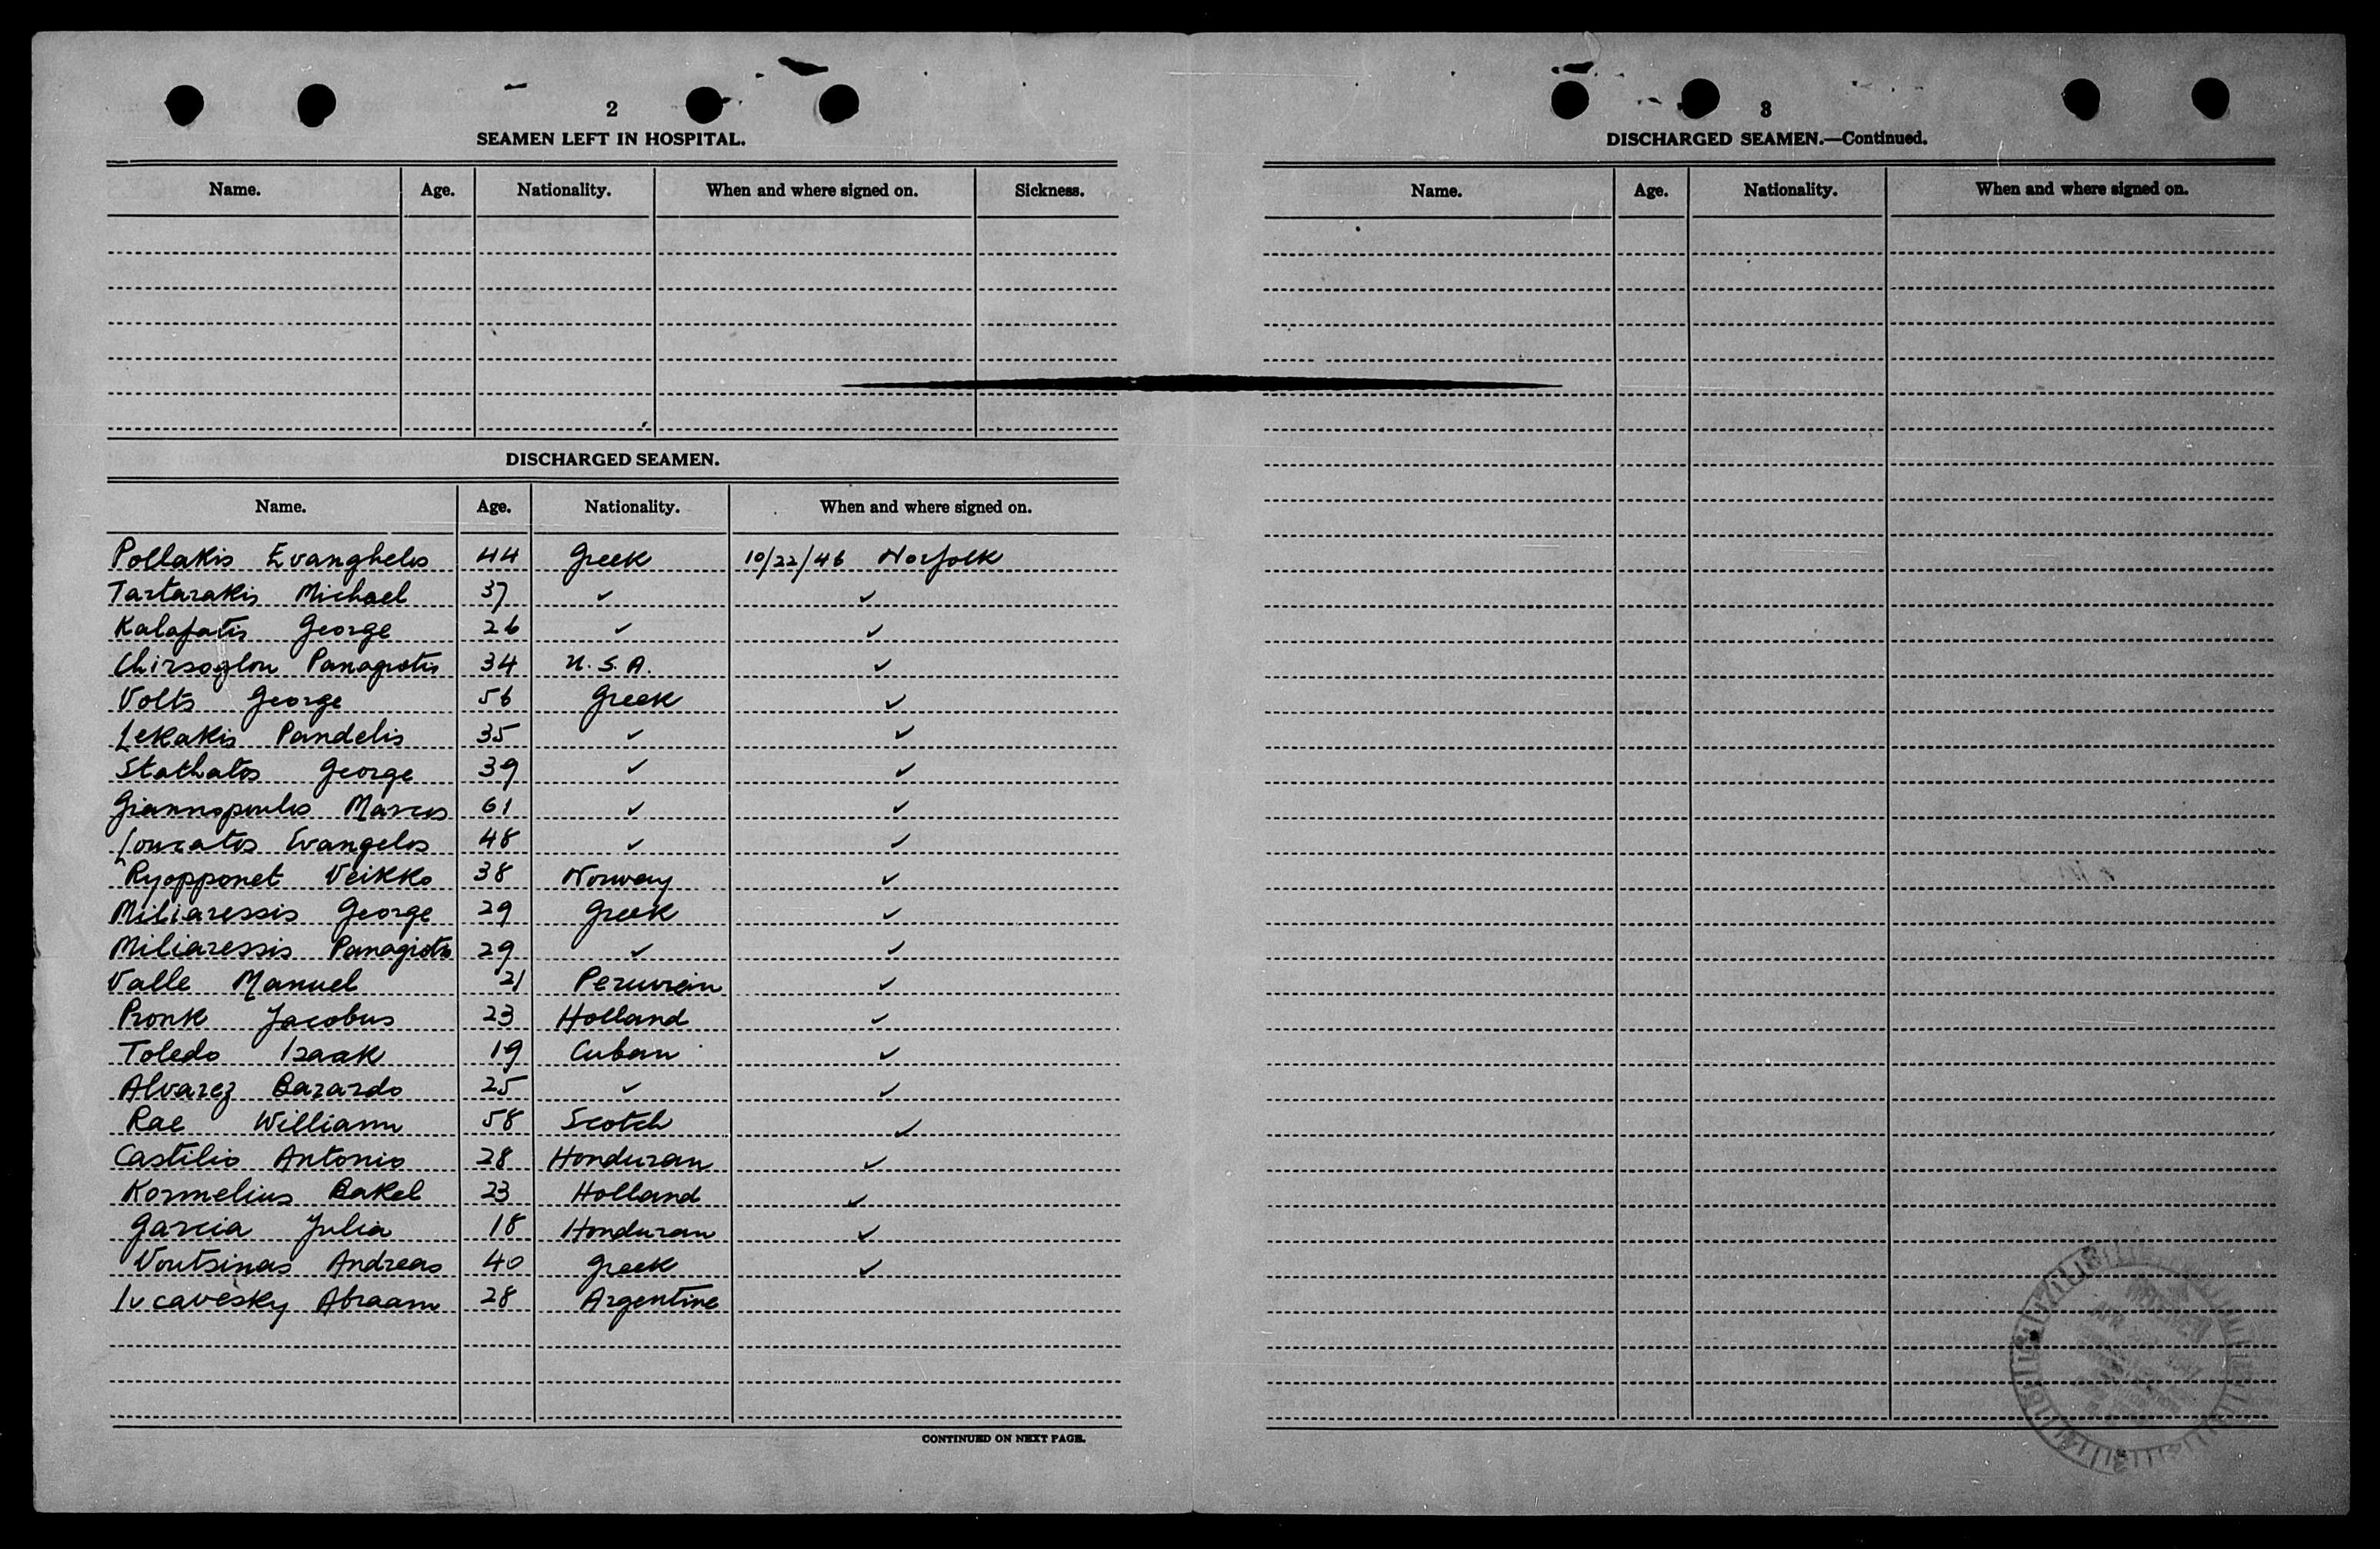 2
SEAMEN LEFT IN HOSPITAL.
Name. Age. Nationality. When and where signed on. Sickness.
DISCHARGED SEAMEN.
Name. Age. Nationality. When and where signed on.
Pollakis Evanghelos 44 Greek 10/22/46 Norfolk
Tartarakis Michael 37 ✓ ✓
Kalafatis George 26 ✓ ✓
Chirsoglou Panagiotis 34 U.S.A. ✓
Volts George 56 Greek ✓
Lekakis Pandelis 35 ✓ ✓
Stathatos George 39 ✓ ✓
Giannopoulos Marcos 61 ✓ ✓
Loucatos Evangelos 48 ✓ ✓
Ryopponet Veikko 38 Norway ✓
Miliaressis George 29 Greek ✓
Miliaressis Panagiotis 29 ✓ ✓
Valle Manuel 21 Peruvian ✓
Pronk Jacobus 23 Holland ✓
Toledo Izaak 19 Cuban ✓
Alvarez Barardo 25 ✓ ✓
Rae William 58 Scotch ✓
Castilio Antonio 28 Honduran ✓
Kornelius Bakel 23 Holland ✓
Garcia Julia 18 Honduran ✓
Voutsinas Andreas 40 Greek ✓
Ivcavesky Abraam 28 Argentine
CONTINUED ON NEXT PAGE.
3
DISCHARGED SEAMEN.—Continued.
Name. Age. Nationality. When and where signed on.
RECEIVED
APR 1947